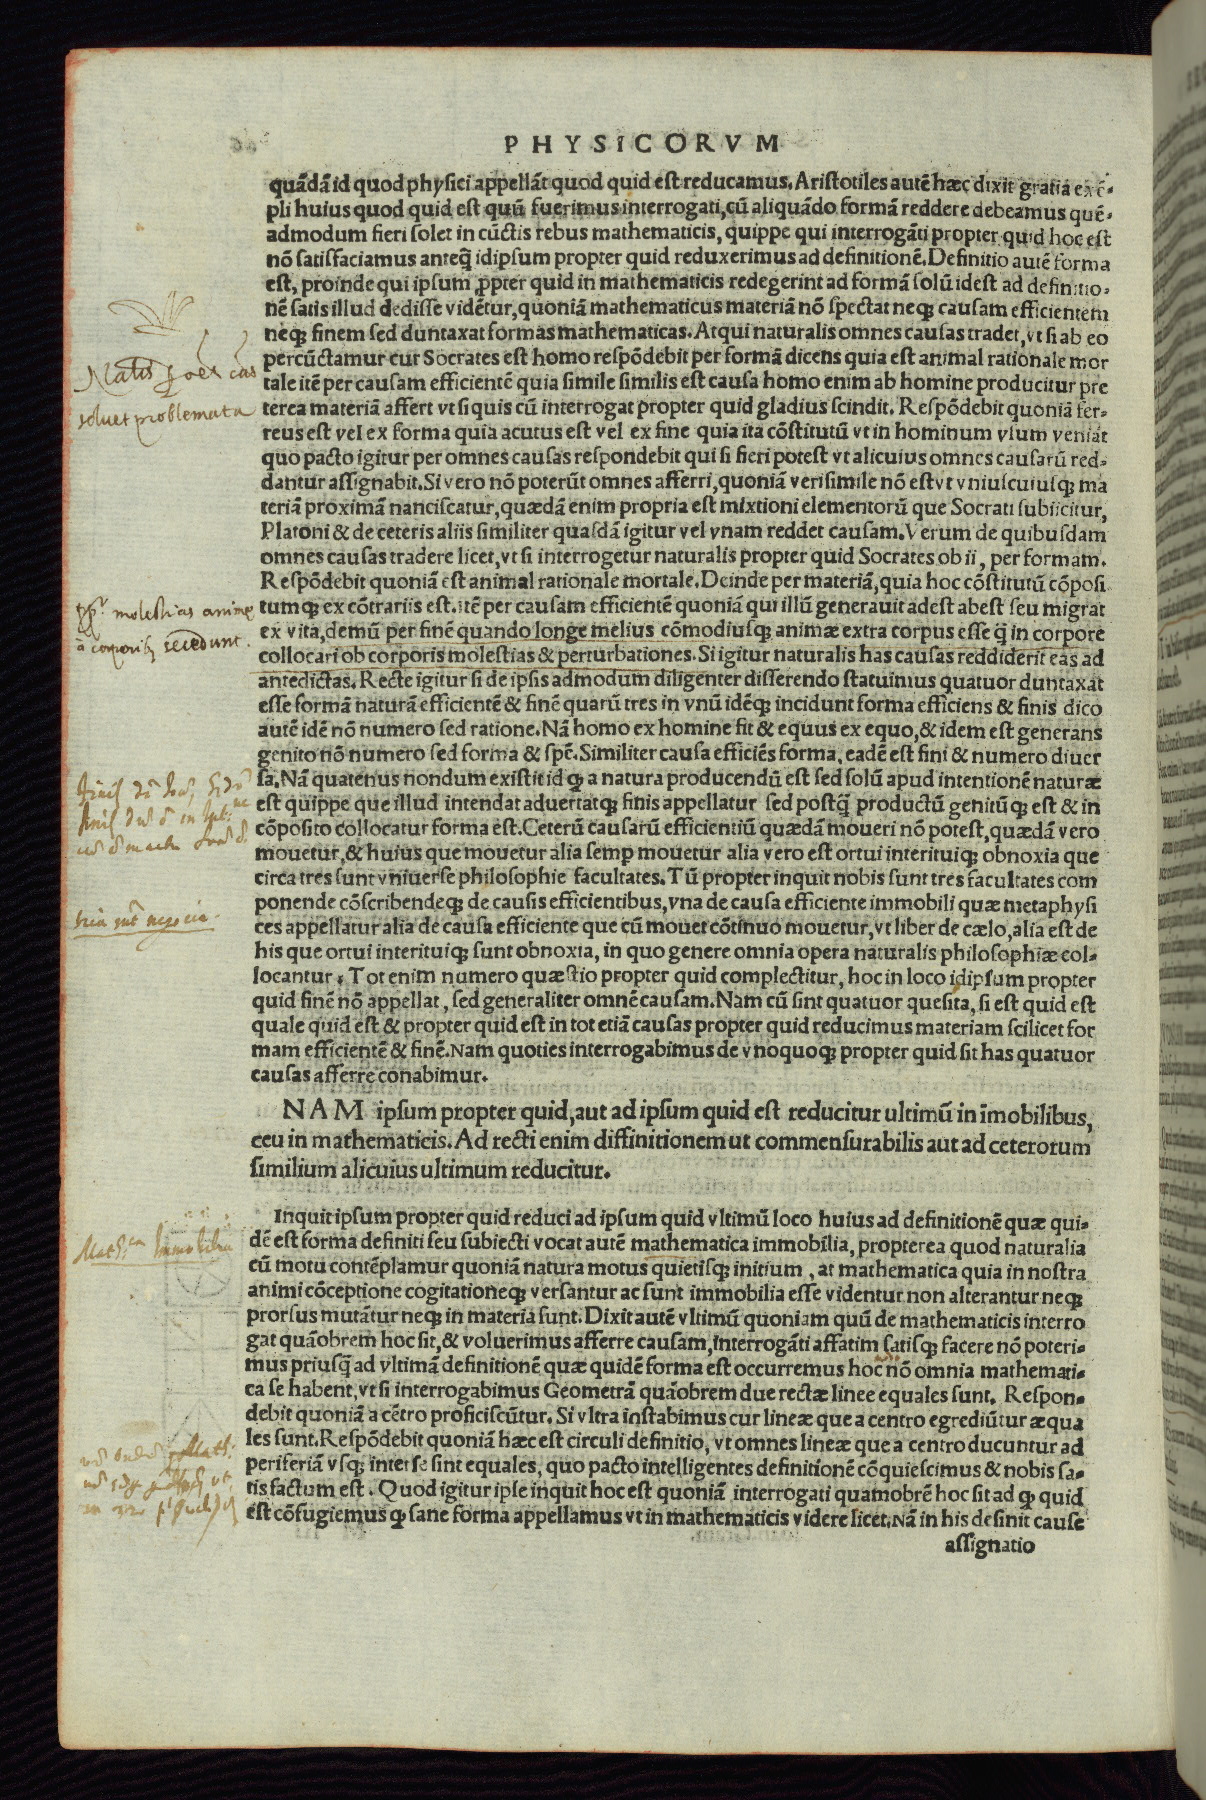 PHYSICORVM
quãdã id quod physici appellãt quod quid est reducamus. Aristotiles autẽ hæc dixit gratia exẽ-
pli huius quod quid est quũ fuerimus interrogati, cũ aliquãdo formã reddere debeamus quẽ-
admodum fieri solet in cũctis rebus mathematicis, quippe qui interrogãti propter quid hoc est
nõ satisfaciamus anteq̃ idipsum propter quid reduxerimus ad definitionẽ. Definitio autẽ forma
est, proinde qui ipsum ꝓpter quid in mathematicis redegerint ad formã solũ idest ad definitio-
nẽ satis illud dedisse vidẽtur, quoniã mathematicus materiã nõ spectat neqꝫ causam efficientem
neqꝫ finem sed duntaxat formas mathematicas. Atqui naturalis omnes causas tradet, vt si ab eo
Natis
percũctamur cur Socrates est homo respõdebit per formã dicens quia est animal rationale mor
tale itẽ per causam efficientẽ quia simile similis est causa homo enim ab homine producitur pre
soluet problemata
terea materiã affert vt si quis cũ interrogat propter quid gladius scindit. Respõdebit quoniã fer-
reus est vel ex forma quia acutus est vel ex fine quia ita cõstitutũ vt in hominum vsum veniãt
quo pacto igitur per omnes causas respondebit qui si fieri potest vt alicuius omnes causarũ red-
dantur assignabit. Si vero nõ poterũt omnes afferri, quoniã verisimile nõ est vt vniuscuiusqꝫ ma
teriã proximã nanciscatur, quædã enim propria est mixtioni elementorũ que Socrati subiicitur,
Platoni & de ceteris aliis similiter quasdã igitur vel vnam reddet causam. Verum de quibusdam
omnes causas tradere licet, vt si interrogetur naturalis propter quid Socrates ob ii, per formam.
Respõdebit quoniã est animal rationale mortale. Deinde per materiã, quia hoc cõstitutũ cõposi
molestias anime
tumqꝫ ex cõtrariis est. itẽ per causam efficientẽ quoniã qui illũ generauit adest abest seu migrat
ã corporibꝫ secedunt.
ex vita, demũ per finẽ quando longe melius cõmodiusqꝫ animæ extra corpus esse q̃ in corpore
collocari ob corporis molestias & perturbationes. Si igitur naturalis has causas reddiderit eas ad
antedictas. Recte igitur si de ipsis admodum diligenter disserendo statuimus quatuor duntaxat
esse formã naturã efficientẽ & finẽ quarũ tres in vnũ idẽqꝫ incidunt forma efficiens & finis dico
autẽ idẽ nõ numero sed ratione. Nã homo ex homine fit & equus ex equo, & idem est generans
genito nõ numero sed forma & spẽ. Similiter causa efficiẽs forma, eadẽ est fini & numero diuer
sa. Nã quatenus nondum existit id qꝫ a natura producendũ est sed solũ apud intentionẽ naturæ
est quippe que illud intendat aduertatqꝫ finis appellatur sed postq̃ productũ genitũqꝫ est & in
cõposito collocatur forma est. Ceterũ causarũ efficientiũ quædã moueri nõ potest, quædã vero
mouetur, & huius que mouetur alia semꝑ mouetur alia vero est ortui interituiqꝫ obnoxia que
circa tres sunt vniuerse philosophie facultates. Tũ propter inquit nobis sunt tres facultates com
tria sũt negocia.
ponende cõscribendeqꝫ de causis efficientibus, vna de causa efficiente immobili quæ metaphysi
ces appellatur alia de causa efficiente que cũ mouet cõtinuo mouetur, vt liber de cælo, alia est de
his que ortui interituiqꝫ sunt obnoxia, in quo genere omnia opera naturalis philosophiæ col-
locantur. Tot enim numero quæstio propter quid complectitur, hoc in loco idipsum propter
quid finẽ nõ appellat, sed generaliter omnẽ causam. Nam cũ sint quatuor quesita, si est quid est
quale quid est & propter quid est in tot etiã causas propter quid reducimus materiam scilicet for
mam efficientẽ & finẽ. Nam quoties interrogabimus de vnoquoqꝫ propter quid sit has quatuor
causas afferre conabimur.
NAM ipsum propter quid, aut ad ipsum quid est reducitur ultimũ in ĩmobilibus,
ceu in mathematicis. Ad recti enim diffinitionem ut commensurabilis aut ad ceterorum
similium alicuius ultimum reducitur.
Inquit ipsum propter quid reduci ad ipsum quid vltimũ loco huius ad definitionẽ quæ qui-
Immobilia
dẽ est forma definiti seu subiecti vocat autẽ mathematica immobilia, propterea quod naturalia
cũ motu contẽplamur quoniã natura motus quietisqꝫ initium, at mathematica quia in nostra
animi cõceptione cogitationeqꝫ versantur ac sunt immobilia esse videntur non alterantur neqꝫ
prorsus mutãtur neqꝫ in materia sunt. Dixit autẽ vltimũ quoniam quũ de mathematicis interro
gat quãobrem hoc sit, & voluerimus afferre causam, interrogãti affatim satisqꝫ facere nõ poteri-
mus priusq̃ ad vltimã definitionẽ quæ quidẽ forma est occurremus hoc nõ omnia mathemati-
ca se habent, vt si interrogabimus Geometrã quãobrem due rectæ linee equales sunt. Respon-
debit quoniã a cẽtro proficiscũtur. Si vltra instabimus cur lineæ que a centro egrediũtur æqua
les sunt. Respõdebit quoniã hæc est circuli definitio, vt omnes lineæ que a centro ducuntur ad
periferiã vsqꝫ inter se sint equales, quo pacto intelligentes definitionẽ cõquiescimus & nobis sa-
tis factum est. Quod igitur ipse inquit hoc est quoniã interrogati quamobrẽ hoc sit ad qꝫ quid
est cõfugiemus qꝫ sane forma appellamus vt in mathematicis videre licet. Nã in his desinit cause
assignatio